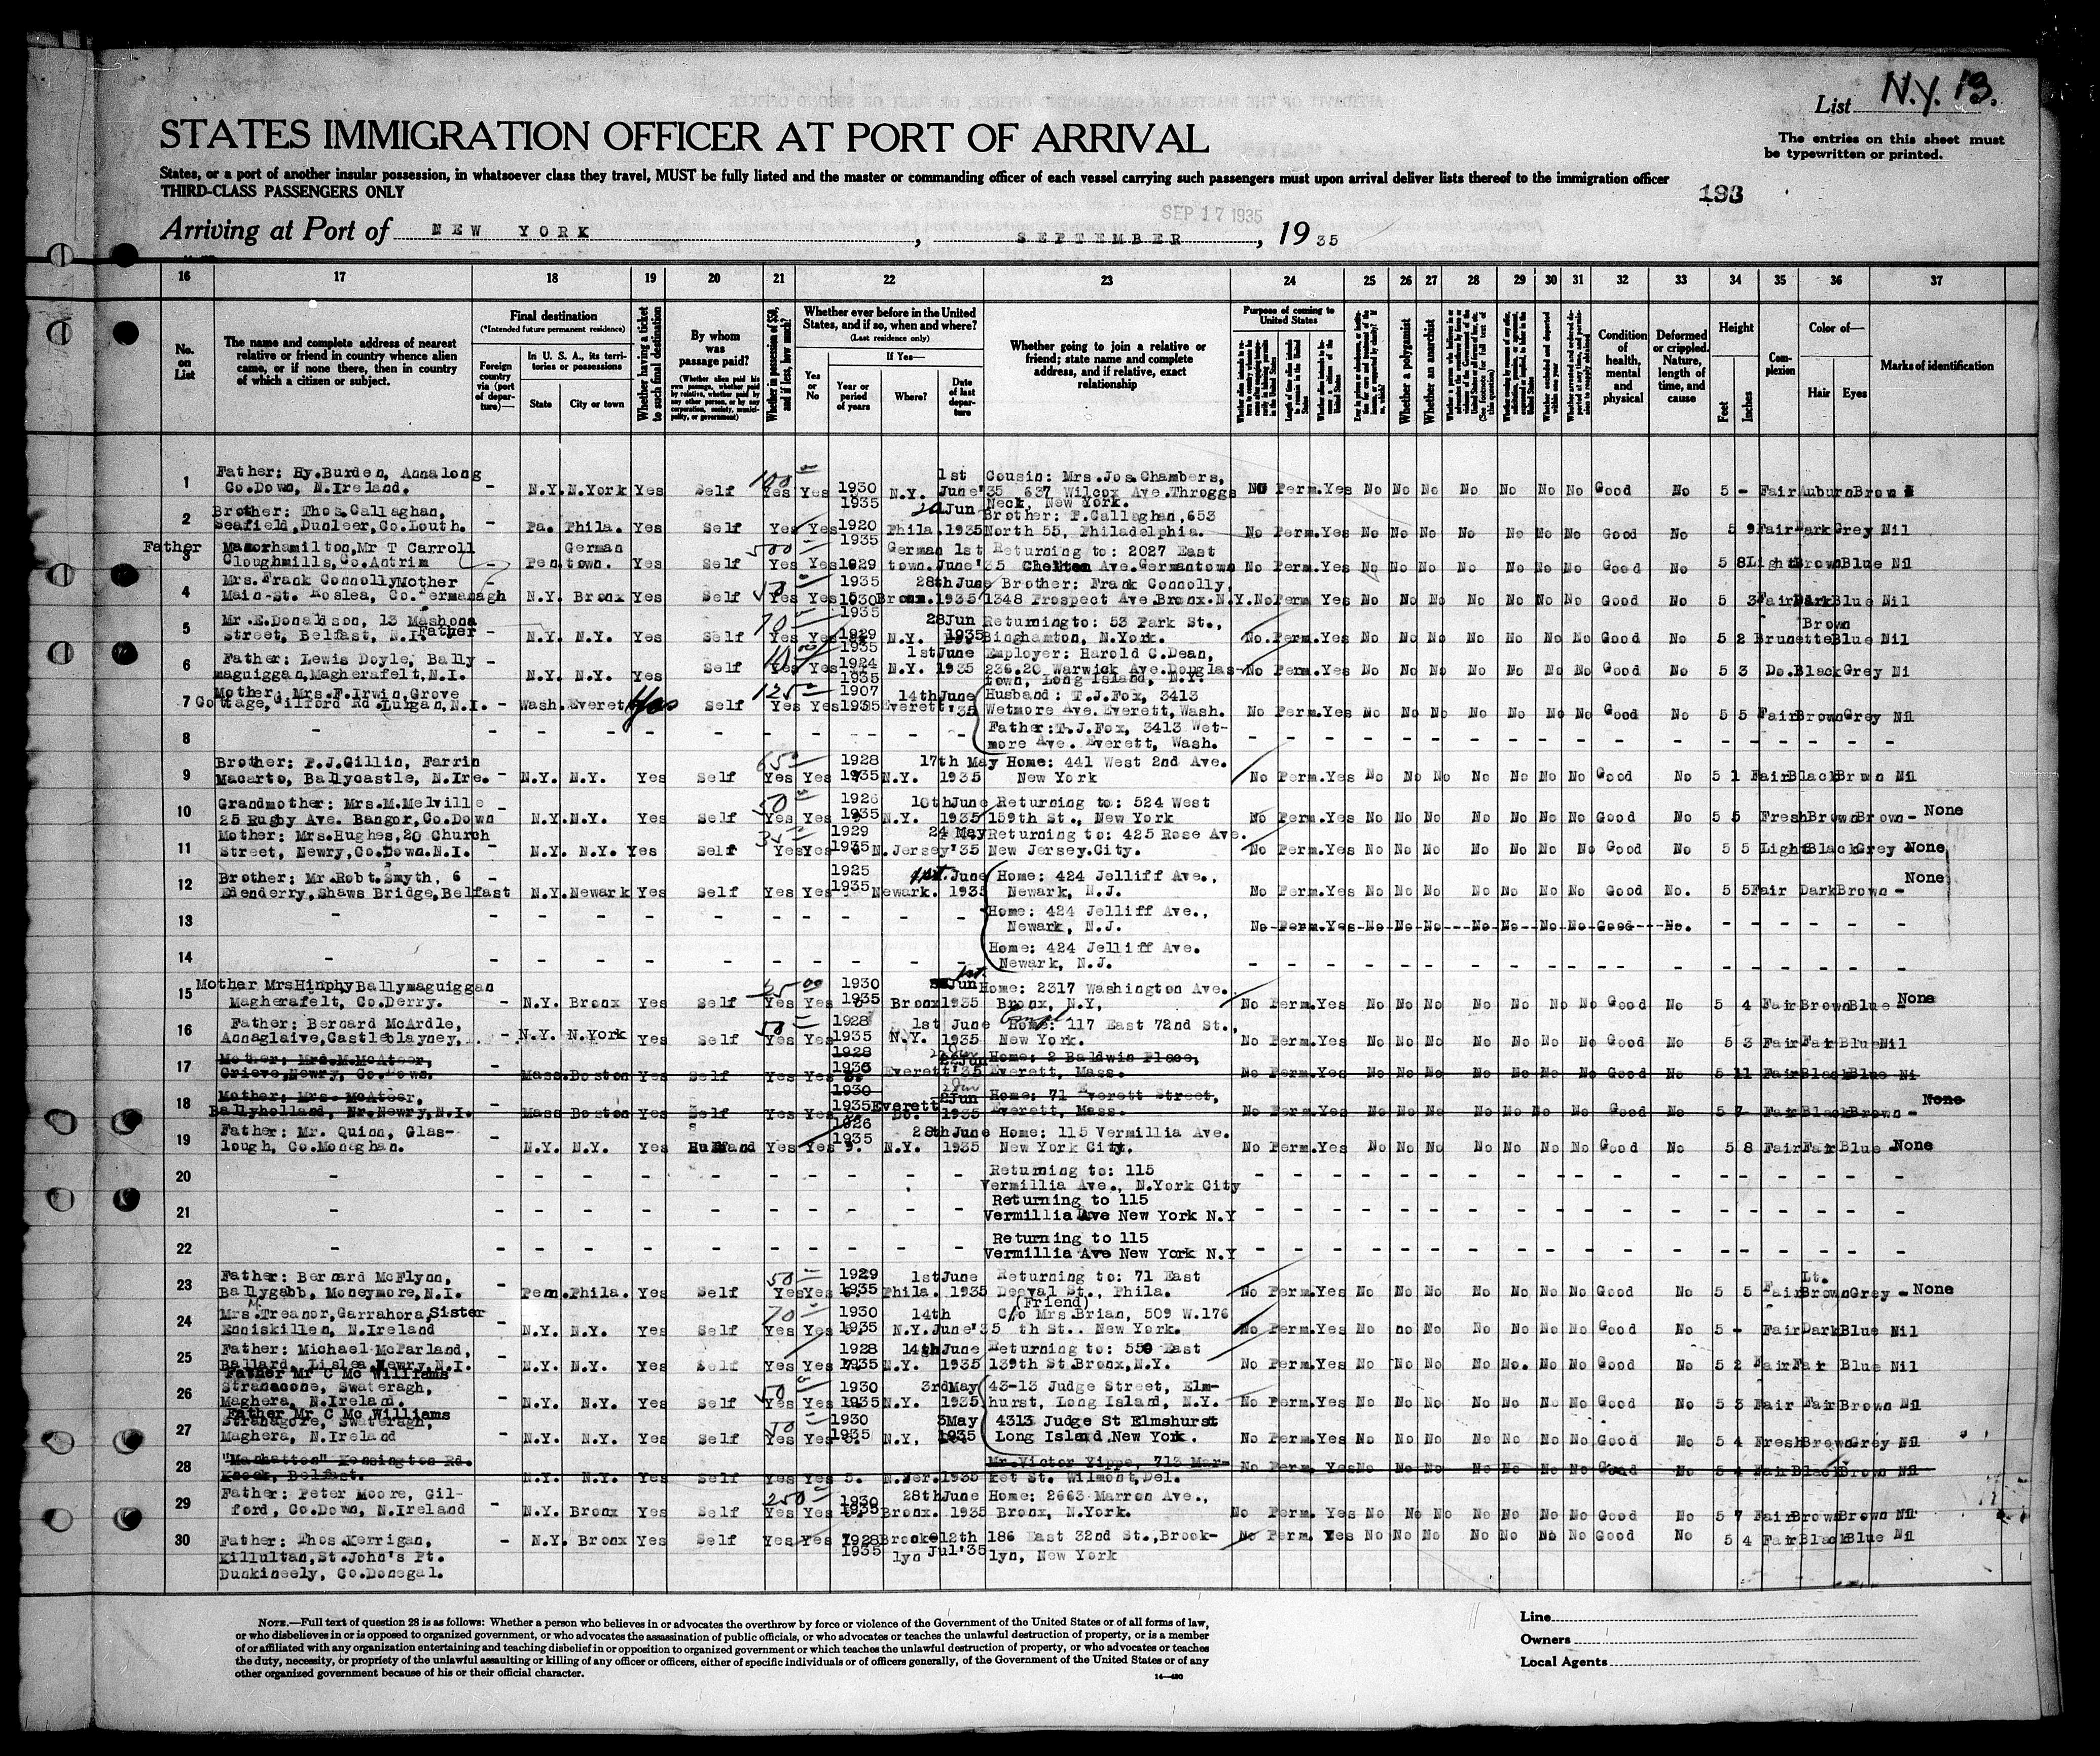 List N.Y. 13.
STATES IMMIGRATION OFFICER AT PORT OF ARRIVAL
The entries on this sheet must
be typewritten or printed.
States, or a port of another insular possession, in whatsoever class they travel, MUST be fully listed and the master or commanding officer of each vessel carrying such passengers must upon arrival deliver lists thereof to the immigration officer
THIRD-CLASS PASSENGERS ONLY
193
SEP 17 1935
Arriving at Port of NEW YORK, SEPTEMBER, 1935
16 17 18 19 20 21 22 23 24 25 26 27 28 29 30 31 32 33 34 35 36 37
No. on List
The name and complete address of nearest
relative or friend in country whence alien
came, or if none there, then in country
of which a citizen or subject.
Final destination
(*Intended future permanent residence)
Foreign country via (port of departure)—
In U. S. A., its territories or possessions
State City or town
Whether having a ticket to such final destination
By whom was passage paid?
Whether in possession of $50, and if less, how much?
Whether ever before in the United
States, and if so, when and where?
(Last residence only)
Yes or No
If Yes—
Year or period of years
Where?
Date of last departure
Whether going to join a relative or
friend; state name and complete
address, and if relative, exact
relationship
Purpose of coming to United States
Whether a polygamist
Whether an anarchist
Condition of health, mental and physical
Deformed or crippled. Nature, length of time, and cause
Height
Feet Inches
Complexion
Color of—
Hair Eyes
Marks of identification
1 Father: Hy.Burden, Annalong 100 1st Cousin: Mrs.Jos.Chambers,
Co.Down, N.Ireland. - N.Y. N.York Yes Self Yes Yes 1930 1935 N.Y. June'35 637 Wilcox Ave.Throggs No Perm.Yes No No No No No No No Good No 5 - Fair Auburn Brown
Neck, New York.
2 Brother: Thos.Callaghan, Jun Brother: P.Callaghan,653
Seafield,Dunleer,Co.Louth. - Pa. Phila. Yes Self Yes Yes 1920 1935 Phila. 1935 North 55, Philadelphia. No Perm.Yes No No No No No No No Good No 5 9 Fair Dark Grey Nil
3 Father Manorhamilton,Mr T Carroll German 500 German 1st Returning to: 2027 East
Cloughmills,Co.Antrim - Pen. town. Yes Self Yes Yes 1929 town. June'35 Chelten Ave.Germantown No Perm.Yes No No No No No No No Good No 5 8 Light Brown Blue Nil
4 Mrs.Frank Connolly Mother 50 1935 28th June Brother: Frank Connolly,
Main-St. Roslea, Co.Fermanagh N.Y. Bronx Yes Self Yes Yes 1930 Bronx. 1935 1348 Prospect Ave.Bronx.N.Y. No Perm Yes No No No No No No No Good No 5 3 Fair Dark Blue Nil
5 Mr.E.Donaldson, 13 Mashona 70 1935 28Jun Returning to: 53 Park St., Brown
Street, Belfast, N.I. Father - N.Y. N.Y. Yes Self Yes Yes 1929 N.Y. 1935 Binghamton, N.York. No.Perm.Yes No No No No No No No Good No 5 2 Brunette Blue Nil
6 Father: Lewis Doyle, Bally - 1935 1st June Employer: Harold C.Dean,
maguiggan,Magherafelt,N.I. N.Y. N.Y. Yes Self Yes Yes 1924 N.Y. 1935 236.20 Warwick Ave.Douglas- No Perm.Yes No No No No No No No Good No 5 3 Do. Black Grey Ni
town, Long Island, N.Y.
7 Mother: Mrs.F.Irwin,Grove 125 1935 1907 14th June Husband: T.J.Fox, 3413
Cottage, Gilford Rd.Lurgan,N.I. - Wash. Everett Yes Self Yes Yes 1935 Everett '35 Wetmore Ave.Everett, Wash. No Perm.Yes No No No No No No No Good No 5 5 Fair Brown Grey Nil
8 Father:T.J.Fox, 3413 Wet-
more Ave. Everett, Wash.
9 Brother: P.J.Gillin, Farrin 65 1928 17th May Home: 441 West 2nd Ave.
Macarto, Ballycastle, N.Ire. - N.Y. N.Y. Yes Self Yes Yes 1935 N.Y. 1935 New York No Perm.Yes No No No No No No No Good No 5 1 Fair Black Brwn Nil
10 Grandmother: Mrs.M.Melville 50 1926 10th June Returning to: 524 West None
25 Rugby Ave. Bangor,Co.Down - N.Y. N.Y. Yes Self Yes Yes 1935 N.Y. 1935 159th St., New York No Perm.Yes No No No No No No No Good No 5 5 Fresh Brown Brown -
11 Mother: Mrs.Hughes,20 Church 35 1929 24 May Returning to: 425 Rose Ave.
Street, Newry,Co.Down.N.I. - N.Y. N.Y. Yes Self Yes Yes 1935 N.Jersey '35 New Jersey.City. No Perm.Yes No No No No No No No Good No 5 5 Light Black Grey None
12 Brother: Mr.Robt.Smyth, 6 - 1925 1st. June Home: 424 Jelliff Ave., None
Edenderry,Shaws Bridge,Belfast N.Y. Newark Yes Self Yes Yes 1935 Newark. 1935 Newark, N.J. No Perm.Yes No No No No No No No Good No. 5 5 Fair Dark Brown -
13 Home: 424 Jelliff Ave.,
Newark, N.J. No-Perm.Yes-No-No-No---No-No--No-No-Good---No.
14 Home: 424 Jelliff Ave.
Newark, N.J.
15 Mother MrsHinphy Ballymaguiggan 1930 1st. Jun Home: 2317 Washington Ave.
Magherafelt, Co.Derry. - N.Y. Bronx Yes Self Yes Yes 1935 Bronx 1935 Bronx, N.Y, No Perm.Yes No No No No No No No Good No 5 4 Fair Brown Blue - None
16 Father: Bernard McArdle, 50 1928 1st June Home: 117 East 72nd St.,
Annaglaive,Castleblayney, - N.Y. N.York Yes Self Yes Yes 1935 N.Y. 1935 New York. No Perm.Yes No No No No No No No Good No 5 3 Fair Fair Blue Nil
17 Mother: Mrs.M.McAteer, 1928 22Jun Home: 2 Baldwin Place,
Grieve,Newry, Co.Down. Mass. Boston Yes Self Yes Yes 1935 Everett '35 Everett, Mass. No Perm.Yes No No No No No No No Good No 5 11 Fair Black Blue Ni
18 Mother: Mrs. McAteer, 1930 2Jun Home: 71 Everett Street, None
Ballyholland, Nr.Newry,N.I. Mass Boston Yes Self Yes Yes 1935 Everett 1935 Everett, Mass. No Perm.Yes No No No No No No No Good No 5 7 Fair Black Brown -
19 Father: Mr. Quinn, Glas- 1926 28th June Home: 115 Vermillia Ave.
lough, Co.Monaghan. - N.Y. N.Y. Yes Husband Yes Yes 1935 9. N.Y. 1935 New York City. No Perm.Yes No No No No No No No Good No 5 8 Fair Fair Blue - None
20 Returning to: 115
Vermillia Ave., N.York City
21 Returning to 115
Vermillia Ave New York N.Y
22 Returning to 115
Vermillia Ave New York N.Y
23 Father: Bernard McFlynn, 50 1929 1st June Returning to: 71 East Lt.
Ballygabb, Moneymore,N.I. - Pen. Phila. Yes Self Yes Yes 1935 Phila. 1935 Deaval St., Phila. No Perm.Yes No No No No No No No Good No 5 5 Fair Brown Grey - None
24 Mrs. M. Treanor,Garrahora,Sister 70 1930 14th (Friend) C/o Mrs.Brian, 509 W.176
Enniskillen, N.Ireland N.Y. N.Y. Yes Self Yes Yes 1935 N.Y. June'35 th St.. New York. No Perm.Yes No no No No No No No Good No 5 - Fair Dark Blue Nil
25 Father: Michael McParland, 1928 14th June Returning to: 550 East
Ballard, Lislea,Newry,N.I. N.Y. N.Y. Yes Self Yes Yes 1935 N.Y. 1935 139th St.Bronx,N.Y. No Perm.Yes No No No No No. No No Good No 5 2 Fair Fair Blue Nil
26 Father Mr C Mc Williams
Stranagone, Swateragh, 50 1930 3rdMay 43-13 Judge Street, Elm-
Maghera, N.Ireland. N.Y. N.Y. Yes Self Yes Yes 1935 N.Y. 1935 hurst, Long Island, N.Y. No Perm.Yes No No No No No No No Good No 5 3 Fair Fair Brown Nil
27 Father Mr C Mc Williams
Stranagore, Swateragh, 50 1930 3May 4313 Judge St Elmshurst
Maghera, N.Ireland N.Y. N.Y. Yes Self Yes Yes 1935 N.Y, 1935 Long Island.New York. No Perm.Yes No No No No No No No Good No 5 4 Fresh Brown Grey Nil
28 "Manhatton" Kensington Rd. Mr.Victor Yippe, 713 Mar-
Knock, Belfast. N.Y. N.Y. Yes Self Yes Yes 5. N.Jer. 1935 ket St. Wilmont,Del. No Perm. Yes No No No No No No No Good No 5 4 Fair Black Brown Nil
29 Father: Peter Moore, Gil- 250 1930 28th June Home: 2663 Marron Ave.,
ford, Co.Down, N.Ireland N.Y. Bronx Yes Self Yes Yes 1935 Bronx. 1935 Bronx, N.York. No Perm. Yes No No No No No No No Good No 5 7 Fair Brown Brown Nil
30 Father: Thos.Kerrigan, - N.Y. Bronx Yes Self Yes Yes 1928 Brook- 12th 186 East 32nd St.,Brook- No Perm. Yes No No No No No No No Good No 5 4 Fair Black Blue Nil
Killultan,St.John's Pt. 1935 lyn Jul'35 lyn, New York
Dunkineely, Co.Donegal.
NOTE.—Full text of question 28 is as follows: Whether a person who believes in or advocates the overthrow by force or violence of the Government of the United States or of all forms of law,
or who disbelieves in or is opposed to organized government, or who advocates the assassination of public officials, or who advocates or teaches the unlawful destruction of property, or is a member
of or affiliated with any organization entertaining and teaching disbelief in or opposition to organized government or which teaches the unlawful destruction of property, or who advocates or teaches
the duty, necessity, or propriety of the unlawful assaulting or killing of any officer or officers, either of specific individuals or of officers generally, of the Government of the United States or of any
other organized government because of his or their official character.
Line
Owners
Local Agents